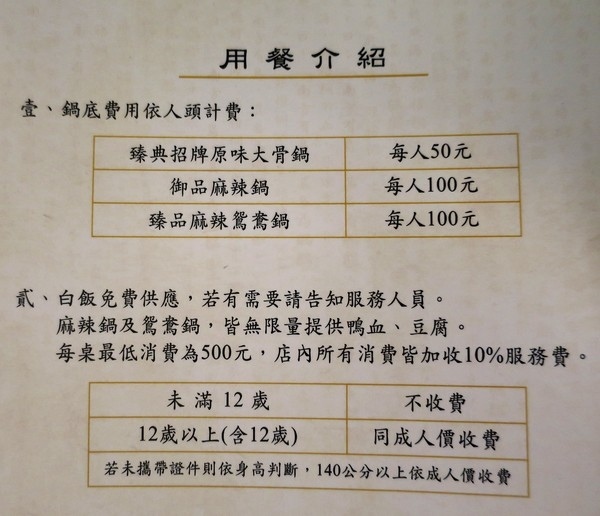 用餐介紹
壹、鍋底費用依人頭計費：
臻典招牌原味大骨鍋 每人50元
御品麻辣鍋 每人100元
臻品麻辣鴛鴦鍋 每人100元
貳、白飯免費供應，若有需要請告知服務人員。
麻辣鍋及鴛鴦鍋，皆無限量提供鴨血、豆腐。
每桌最低消費為500元，店內所有消費皆加收10%服務費。
未滿12歲 不收費
12歲以上(含12歲) 同成人價收費
若未攜帶證件則依身高判斷，140公分以上依成人價收費